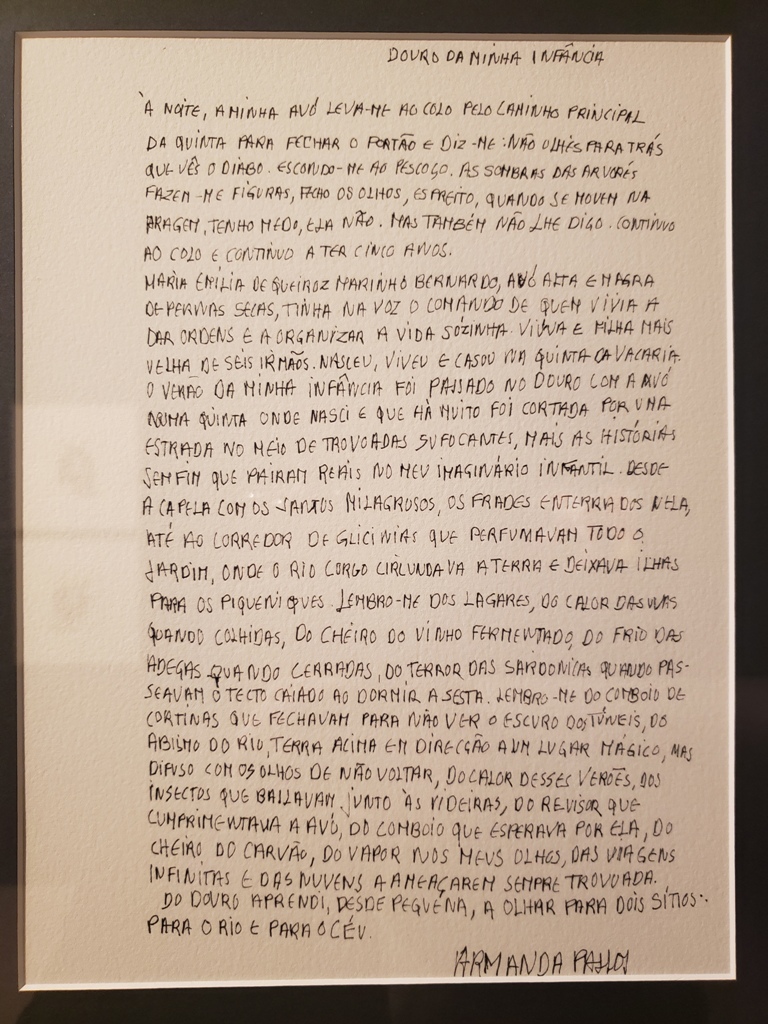 DOURO DA MINHA INFÂNCIA
À NOITE, A MINHA AVÓ LEVA-ME AO COLO PELO CAMINHO PRINCIPAL
DA QUINTA PARA FECHAR O PORTÃO E DIZ-ME: NÃO OLHES PARA TRÁS
QUE VÊS O DIABO. ESCONDO-ME AO PESCOÇO. AS SOMBRAS DAS ARVORES
FAZEM-ME FIGURAS, FECHO OS OLHOS, ESPREITO, QUANDO SE MOVEM NA
ARAGEM, TENHO MEDO, ELA NÃO. MAS TAMBÉM NÃO LHE DIGO. CONTINUO
AO COLO E CONTINUO A TER CINCO ANOS.
MARIA EMÍLIA DE QUEIROZ MARINHO BERNARDO, AVÓ ALTA E MAGRA
DE PERNAS SECAS, TINHA NA VOZ O COMANDO DE QUEM VIVIA A
DAR ORDENS E A ORGANIZAR A VIDA SÓZINHA. VIÚVA E FILHA MAIS
VELHA DE SEIS IRMÃOS. NASCEU, VIVEU E CASOU NA QUINTA DA VACARIA.
O VERÃO DA MINHA INFÂNCIA FOI PASSADO NO DOURO COM A AVÓ
NUMA QUINTA ONDE NASCI E QUE HÁ MUITO FOI CORTADA POR UMA
ESTRADA NO MEIO DE TROVOADAS SUFOCANTES, MAIS AS HISTÓRIAS
SEM FIM QUE PAIRAM REAIS NO MEU IMAGINÁRIO INFANTIL. DESDE
A CAPELA COM OS SANTOS MILAGROSOS, OS FRADES ENTERRADOS NELA,
ATÉ AO CORREDOR DE GLICINIAS QUE PERFUMAVAM TODO O
JARDIM, ONDE O RIO CORGO CIRCUNDAVA A TERRA E DEIXAVA ILHAS
PARA OS PIQUENIQUES. LEMBRO-ME DOS LAGARES, DO CALOR DAS UVAS
QUANDO COLHIDAS, DO CHEIRO DO VINHO FERMENTADO, DO FRIO DAS
ADEGAS QUANDO CERRADAS, DO TERROR DAS SARDONICAS QUANDO PAS-
SEAVAM O TECTO CAIADO AO DORMIR A SESTA. LEMBRO-ME DO COMBOIO DE
CORTINAS QUE FECHAVAM PARA NÃO VER O ESCURO DOS TÚNEIS, DO
ABISMO DO RIO, TERRA ACIMA EM DIRECÇÃO A UM LUGAR MÁGICO, MAS
DIFUSO COM OS OLHOS DE NÃO VOLTAR, DO CALOR DESSES VERÕES, DOS
INSECTOS QUE BAILAVAM JUNTO ÀS VIDEIRAS, DO REVISOR QUE
CUMPRIMENTAVA A AVÓ, DO COMBOIO QUE ESPERAVA POR ELA, DO
CHEIRO DO CARVÃO, DO VAPOR NOS MEUS OLHOS, DAS VIAGENS
INFINITAS E DAS NUVENS A AMEAÇAREM SEMPRE TROVOADA.
DO DOURO APRENDI, DESDE PEQUENA, A OLHAR PARA DOIS SÍTIOS:
PARA O RIO E PARA O CÉU.
ARMANDA PASSOS